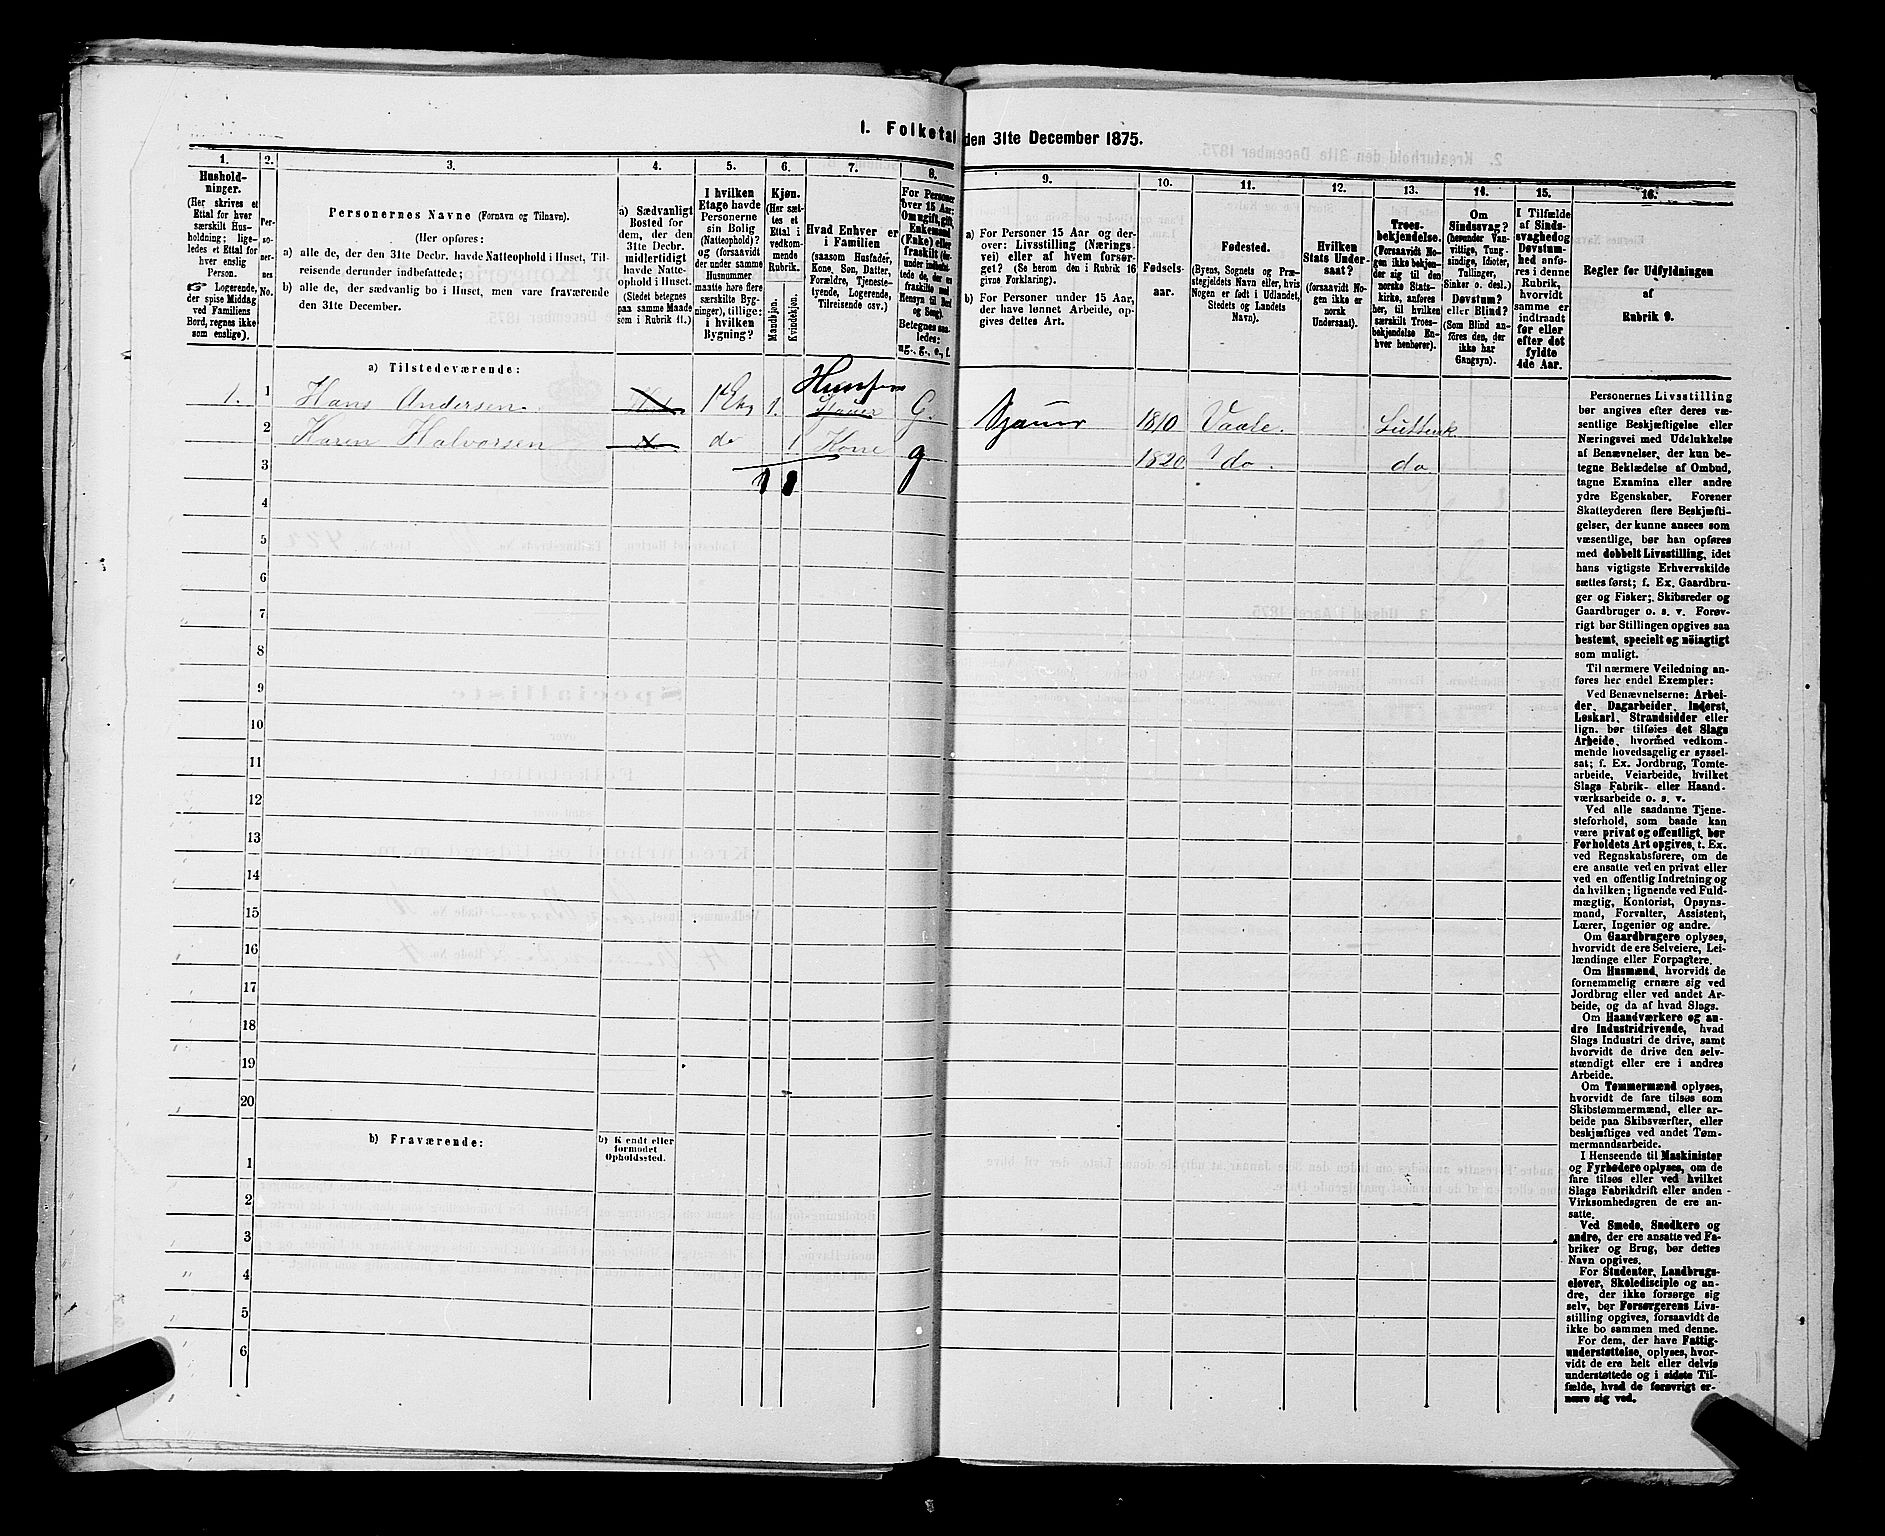 1. Folketal den 31te December 1875.
1. 2. 3. 4. 5. 6. 7. 8. 9. 10. 11. 12. 13. 14. 15. 16.
Husholdninger.
(Her skrives et
Ettal for hver
særskilt Husholdning;
ligeledes et Ettal for
hver enslig
Person.
☞ Logerende,
der spise Middag
ved Familiens
Bord, regnes ikke
som enslige).
Personernes No.
Personernes Navne (Fornavn og Tilnavn).
(Her opføres:
a) alle de, der den 31te Decbr. havde Natteophold i Huset, Tilreisende derunder indbefattede;
b) alle de, der sædvanlig bo i Huset, men vare fraværende
den 31te December.
a) Sædvanligt
Bosted for
dem, der den
31te Decbr.
midlertidigt
havde Natteophold i Huset.
(Stedet betegnes
paa samme Maade
som i Rubrik 11.)
I hvilken
Etage havde
Personerne
sin Bolig
(Natteophold)?
og (forsaavidt
der under samme
Husnummer
maatte høre flere
særskilte Bygninger), tillige:
i hvilken
Bygning?
Kjøn.
(Her sættes et
Ettal i
vedkommende
Rubrik.
Mandkjøn.
Kvindekjøn.
Hvad Enhver er
i Familien
(saasom Husfader,
Kone, Søn, Datter,
Forældre, Tjenestetyende, Logerende,
Tilreisende osv.)
For Personer
over 15 Aar:
Om ugift, gift,
Enkemand
(Enke) eller
fraskilt (herunder indbefattede de, der ere
fraskilte med
Hensyn til Bord
og Seng).
Betegnes saaledes:
ug., g., e., f.
a) For Personer 15 Aar og derover: Livsstilling (Næringsvei) eller af hvem forsørget? (Se herom den i Rubrik 16
givne Forklaring).
b) For Personer under 15 Aar,
der have lønnet Arbeide, opgives dettes Art.
Fødselsaar.
Fødested.
(Byens, Sognets og Præstegjeldets Navn eller, hvis
Nogen er født i Udlandet,
Stedets og Landets
Navn).
Hvilken
Stats Undersaat?
(forsaavidt Nogen ikke er
norsk
Undersaat).
Troesbekjendelse.
(Forsaavidt Nogen ikke bekjender sig til den
norske Statskirke, anføres
her, til hvilken
særskilt Troesbekjendelse Enhver henhører).
Om
Sindssvag?
(herunder Vanvittige, Tungsindige, Idioter,
Tullinger,
Sinker o. desl.)
Døvstum?
eller Blind?
(Som Blind anføres den, der
ikke har
Gangsyn).
I Tilfælde
af Sindssvaghed og
Døvstumhed anføres i denne
Rubrik,
hvorvidt
samme er
indtraadt
før eller
efter det
fyldte
4de Aar.
Regler for Udfyldningen
af
Rubrik 9.
a) Tilstedeværende:
1. 1 Hans Andersen 1. G. 1810 Vaale.
2 Karen Halvorsen do 1 Kone g 1820 do. do
3 1 1
4
5
6
7
8
9
10
11
12
13
14
15
16
17
18
19
20
b) Fraværende: b) Kjendt eller
formodet
Opholdssted.
1
2
3
4
5
6
Personernes Livsstilling
bør angives efter deres væsentlige Beskjæftigelse eller
Næringsvei med Udelukkelse
af Benævnelser, der kun betegne Beklædelse af Ombud,
tagne Examina eller andre
ydre Egenskaber. Forener
Skatteyderen flere Beskjæftigelser, der kunne ansees som
væsentlige, bør han opføres
med dobbelt Livsstilling, idet
hans vigtigste Erhvervskilde
sættes først; f. Ex. Gaardbruger og Fisker; Skibsreder og
Gaardbruger o. s. v. Forøvrigt bør Stillingen opgives saa
bestemt, specielt og nøiagtigt
som muligt.
Til nærmere Veiledning anføres her endel Exempler:
Ved Benævnelserne: Arbeider, Dagarbeider, Inderst,
Løskarl, Strandsidder eller
lign. bør tilføies det Slags
Arbeide, hvormed vedkommende hovedsagelig er sysselsat; f. Ex. Jordbrug, Tomtearbeide, Veiarbeide, hvilket
Slags Fabrik- eller Haandværksarbeide o. s. v.
Ved alle saadanne Tjenesteforhold, som baade kan
være privat og offentligt, bør
Forholdets Art opgives, t. Ex.
ved Regnskabsførere, om de
ere ansatte ved en privat eller
ved en offentlig Indretning og
da hvilken; lignende ved Fuldmægtig, Kontorist, Opsynsmand, Forvalter, Assistent,
Lærer, Ingeniør og andre.
Om Gaardbrugere oplyses,
hvorvidt de ere Selveiere, Leilændinge eller Forpagtere.
Om Husmænd, hvorvidt de
fornemmelig ernære sig ved
Jordbrug eller ved andet Arbeide, og da af hvad Slags.
Om Haandværkere og andre Industridrivende, hvad
Slags Industri de drive, samt
hvorvidt de drive den selvstændigt eller ere i andres
Arbeide.
Om Tømmermænd oplyses,
hvorvidt de fare tilsøs som
Skibstømmermænd, eller arbeide paa Skibsværfter, eller
beskjæftiges ved andet Tømmermandsarbeide.
I Henseende til Maskinister
og Fyrbødere oplyses, om de
fare tilsøs eller ved hvilket
Slags Fabrikdrift eller anden
Virksomhedsgren de ere ansatte.
Ved Smede, Snedkere og
andre, der ere ansatte ved Fabriker og Brug, bør dettes
Navn opgives.
For Studenter, Landbrugselever, Skoledisciple og andre, der ikke forsørge sig
selv, bør Forsørgerens Livsstilling opgives, forsaavidt de
ikke bo sammen med denne.
For dem, der have Fattigunderstøttelse, oplyses, hvorvidt de ere helt eller delvis
understøttede og i sidste Tilfælde, hvad de forøvrigt ernære sig ved.